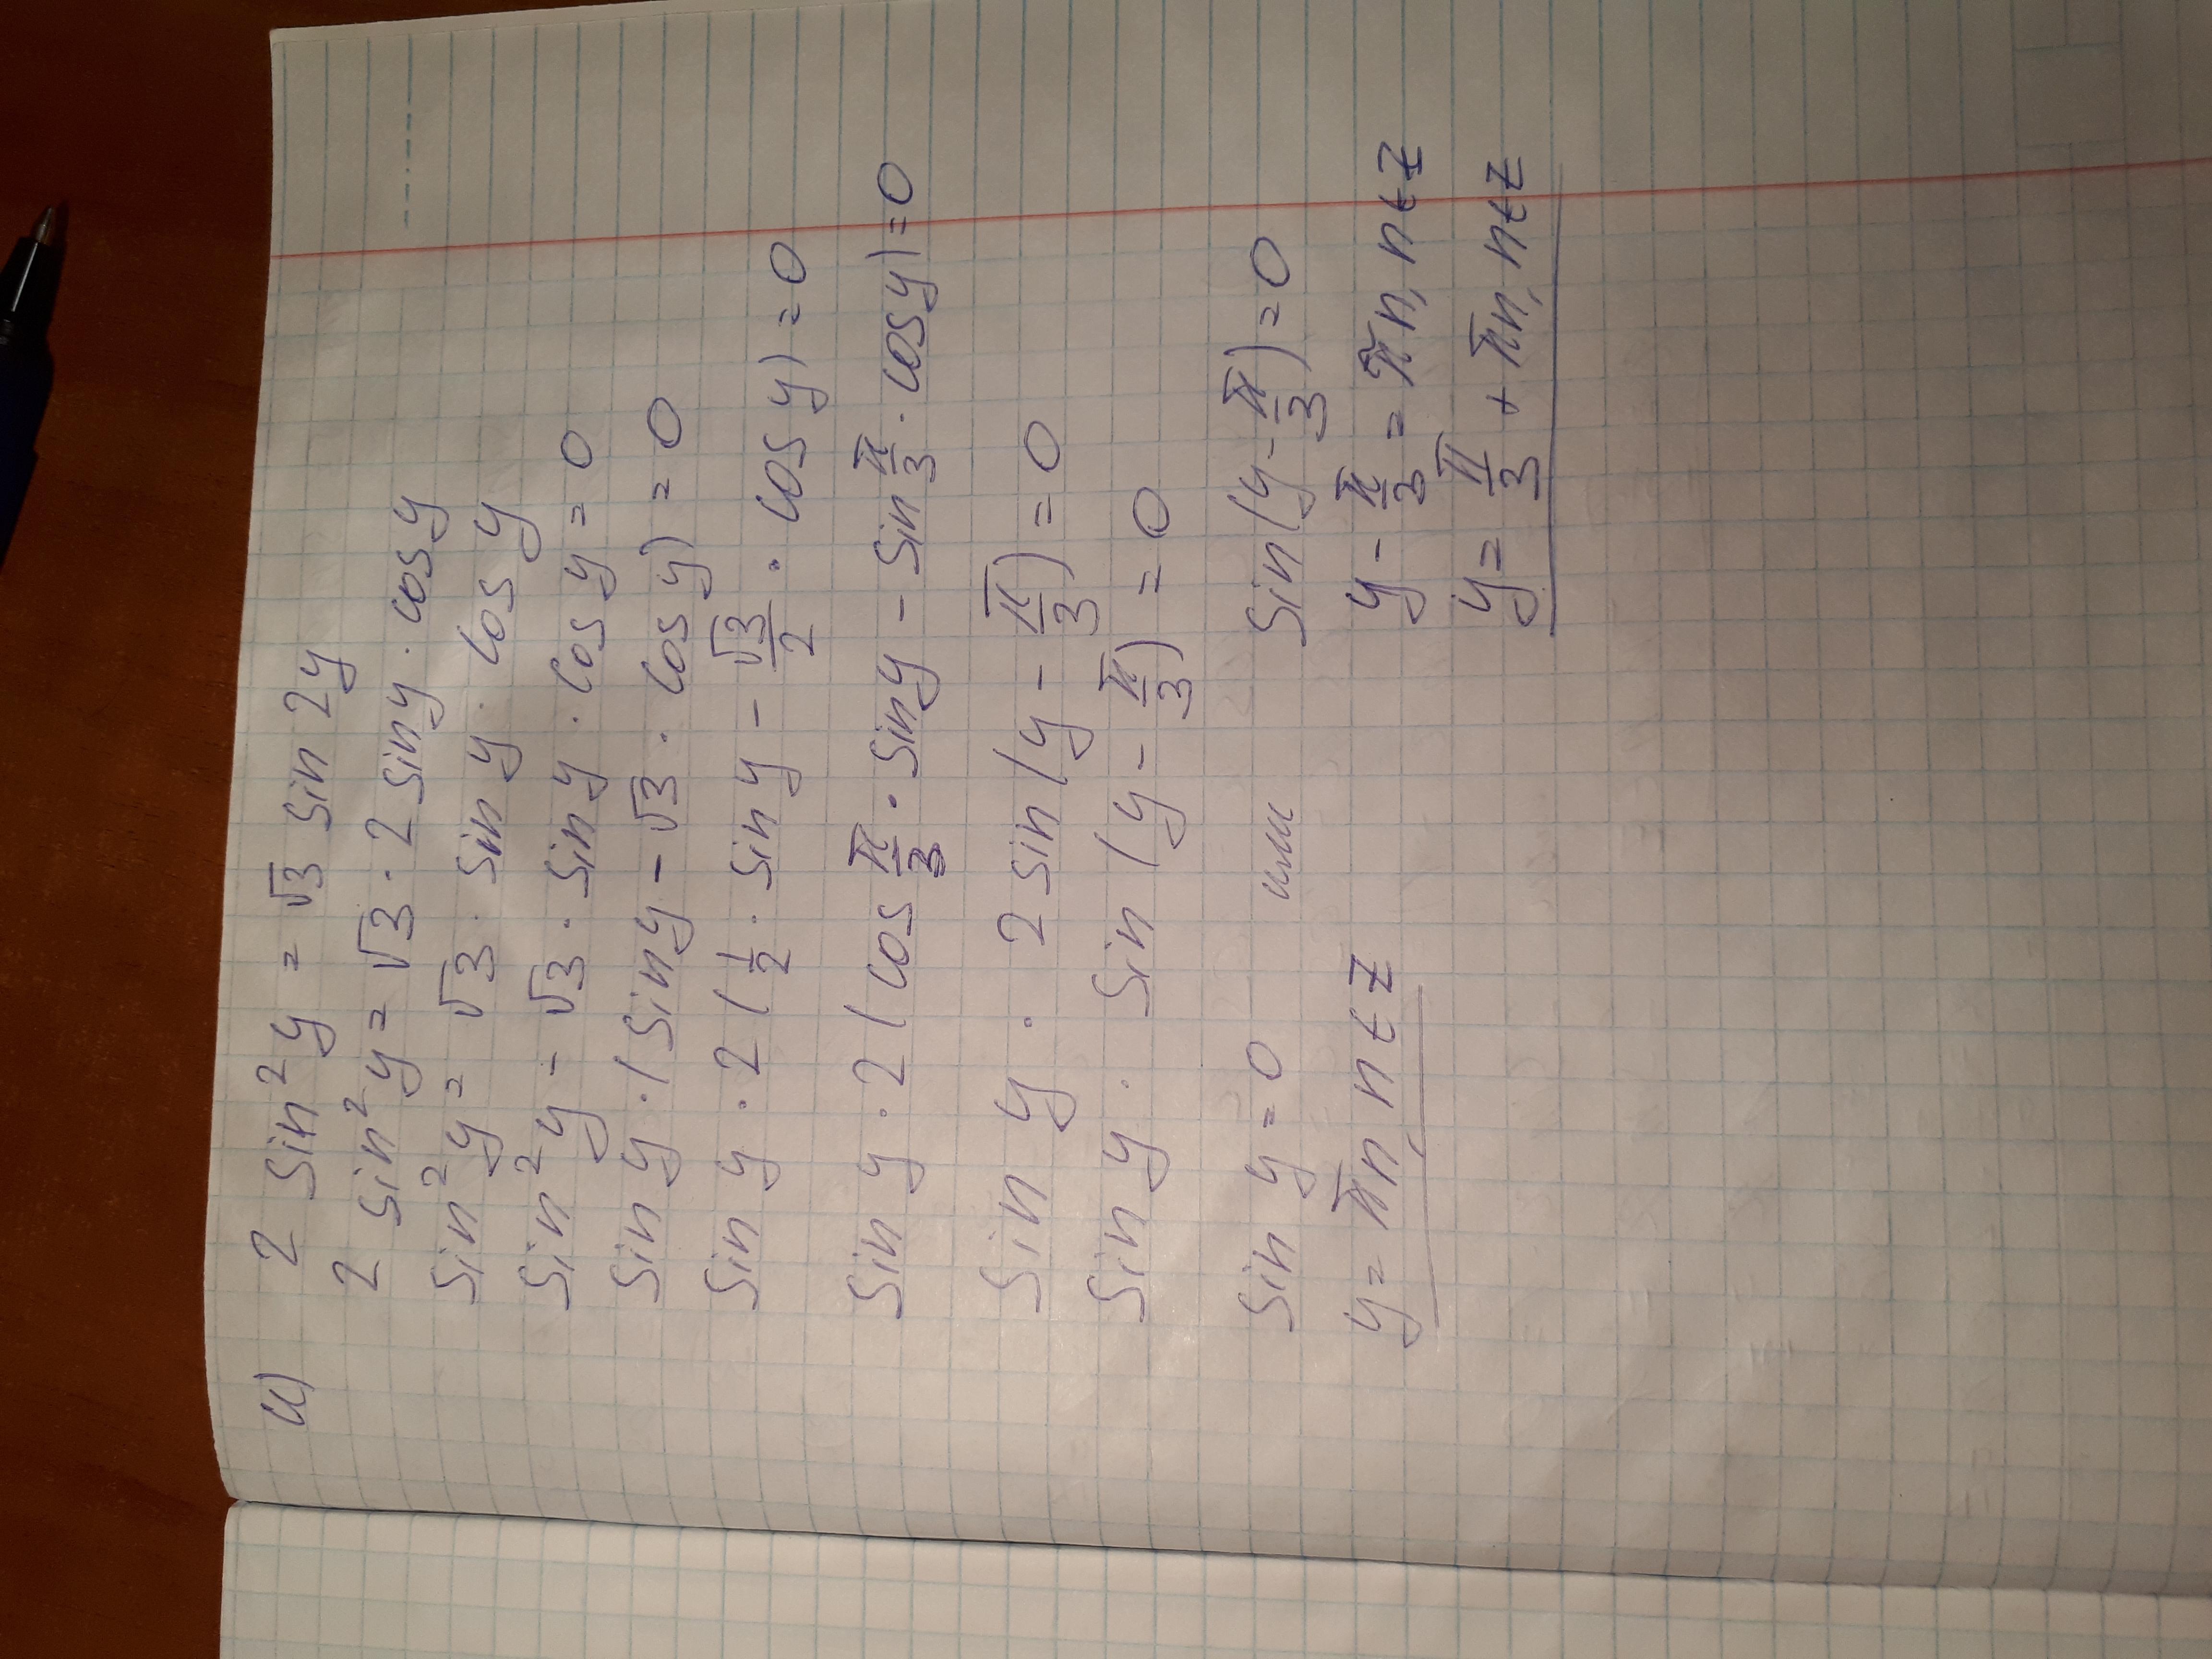 и) 2 sin² y = √3 sin 2y
2 sin² y = √3 · 2 sin y · cos y
sin² y = √3 · sin y · cos y
sin² y − √3 · sin y · cos y = 0
sin y · (sin y − √3 · cos y) = 0
sin y · 2 (1/2 · sin y − √3/2 · cos y) = 0
sin y · 2 (cos π/3 · sin y − sin π/3 · cos y) = 0
sin y · 2 sin (y − π/3) = 0
sin y · sin (y − π/3) = 0
sin y = 0 или sin (y − π/3) = 0
y = πn, n ∈ Z y − π/3 = πn, n ∈ Z
y = π/3 + πn, n ∈ Z